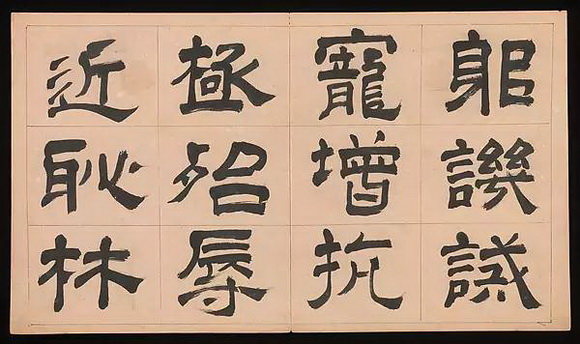 躬譏誡
寵增抗
極殆辱
近恥林